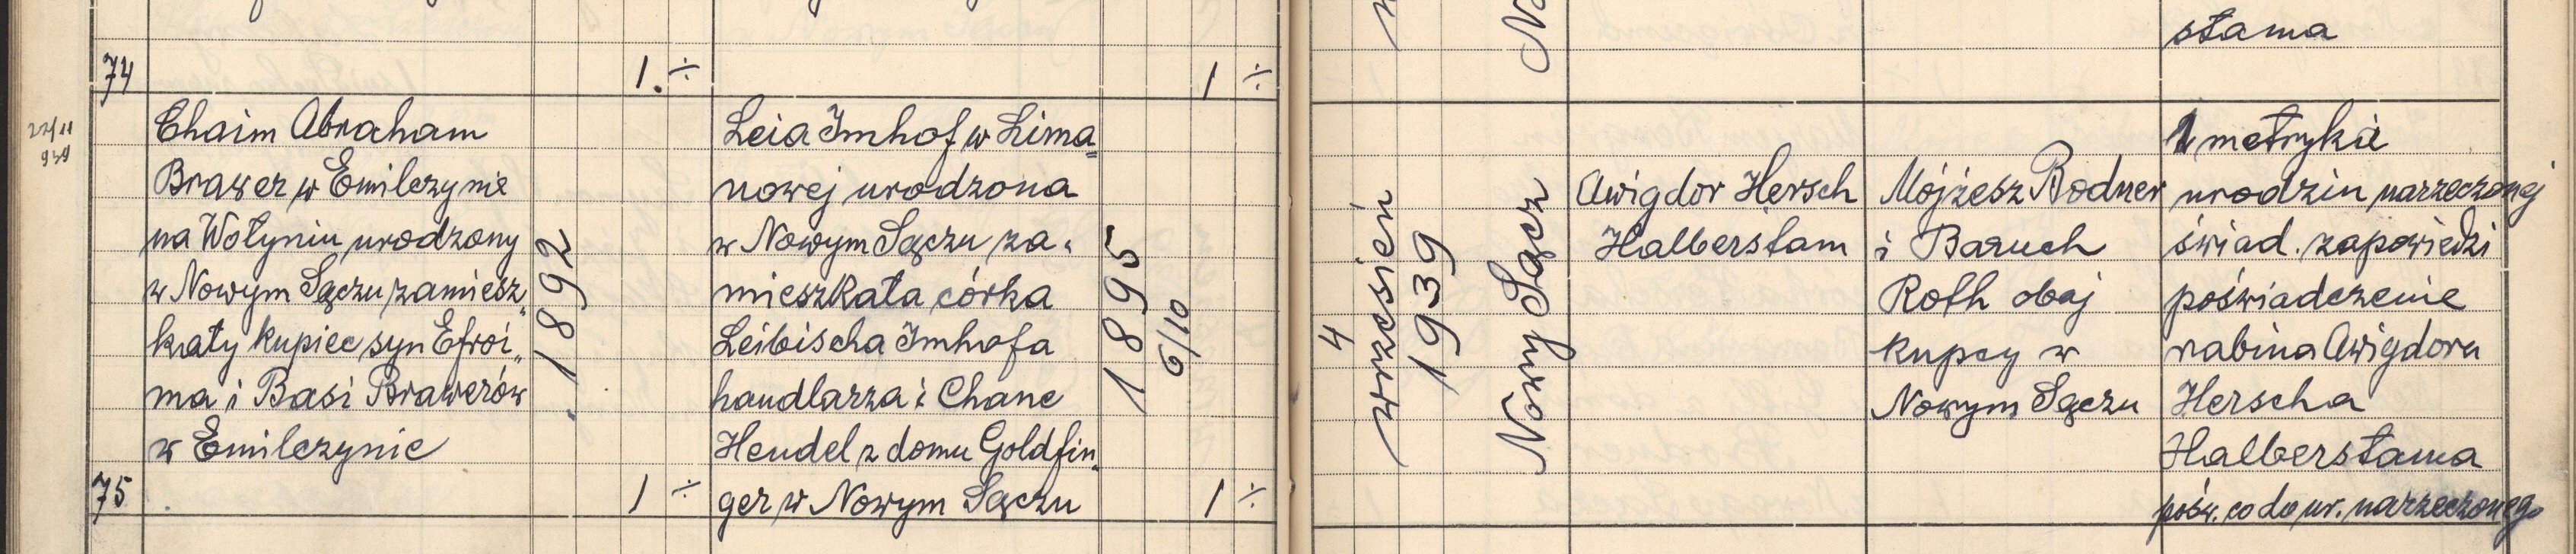 stama
74
1. ÷
1 ÷
22/11
939
Chaim Abraham
Brawer w Emilczynie
na Wołyniu urodzony
w Nowym Sączu zamiesz„
kały kupiec syn Efroi„
ma i Basi Brawerów
w Emilczynie
75
1892
1 ÷
Leia Imhof w Lima=
nowej urodzona
w Nowym Sączu za„
mieszkała córka
Leibischa Imhofa
handlarza i Chane
Hendel z domu Goldfin„
ger w Nowym Sączu
1895
6/10
1 ÷
4
wrzesień
1939
Nowy Sącz
Awigdor Hersch
Halberstam
Mojżesz Bodner
i Baruch
Roth obaj
kupcy w
Nowym Sączu
1 metryka
urodzin narzeczonej
świad. zapowiedzi
poświadczenie
rabina Awigdora
Herscha
Halberstama
pośw. co do ur. narzeczonego